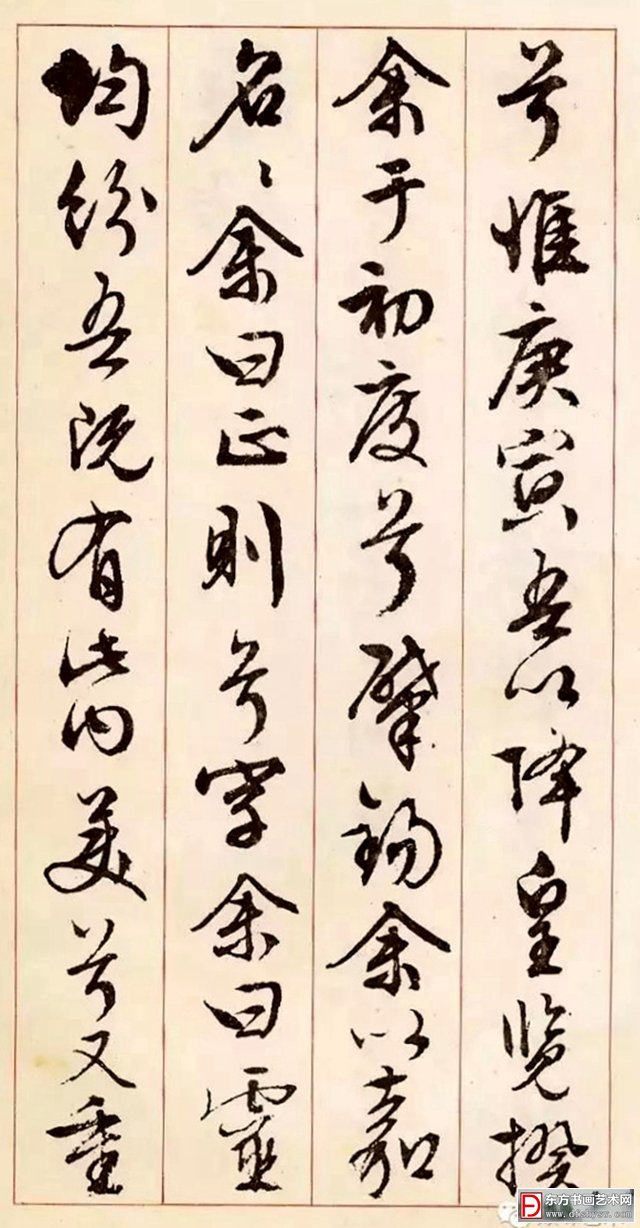 兮惟庚寅吾以降皇覽揆
余于初度兮肇錫余以嘉
名〻余曰正則兮字余曰靈
均紛吾既有此內美兮又重
东方书画艺术网